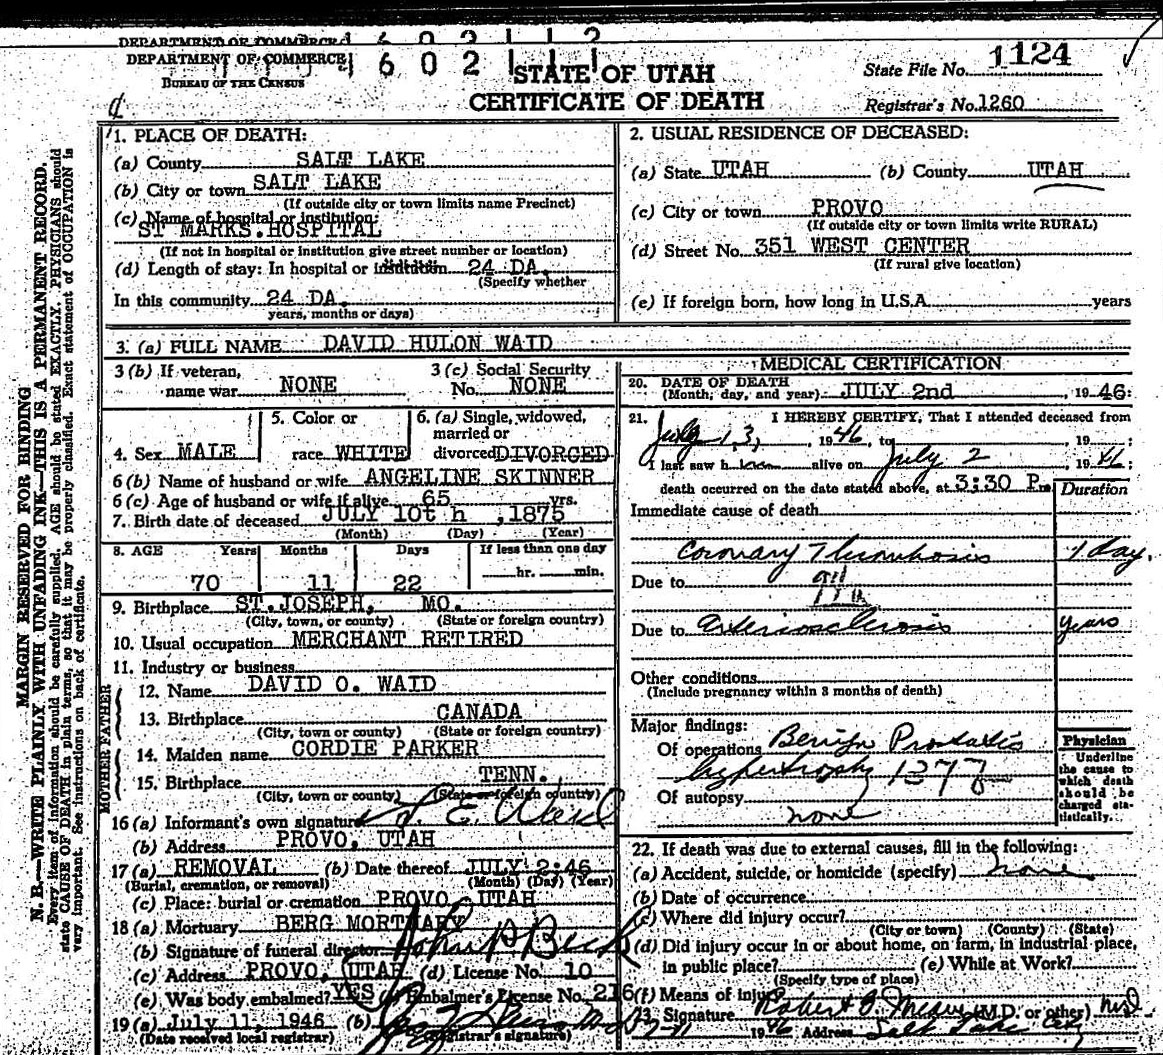 DEPARTMENT OF COMMERCE
DEPARTMENT OF COMMERCE
BUREAU OF THE CENSUS
STATE OF UTAH
CERTIFICATE OF DEATH
State File No. 1124
Registrar's No. 1260
MARGIN RESERVED FOR BINDING
N. B.—WRITE PLAINLY, WITH UNFADING INK—THIS IS A PERMANENT RECORD.
Every item of information should be carefully supplied. AGE should be stated EXACTLY. PHYSICIANS should
state CAUSE OF DEATH in plain terms, so that it may be properly classified. Exact statement of OCCUPATION is
very important. See instructions on back of certificate.
1. PLACE OF DEATH:
(a) County SALT LAKE
(b) City or town SALT LAKE
(If outside city or town limits name Precinct)
(c) Name of hospital or institution:
ST MARKS HOSPITAL
(If not in hospital or institution give street number or location)
(d) Length of stay: In hospital or institution 24 DA.
(Specify whether
In this community 24 DA.
years, months or days)
2. USUAL RESIDENCE OF DECEASED:
(a) State UTAH (b) County UTAH
(c) City or town PROVO
(If outside city or town limits write RURAL)
(d) Street No. 351 WEST CENTER
(If rural give location)
(e) If foreign born, how long in U.S.A. years
3. (a) FULL NAME DAVID HULON WAID
3 (b) If veteran, name war NONE
3 (c) Social Security No. NONE
4. Sex MALE
5. Color or race WHITE
6. (a) Single, widowed, married or divorced DIVORCED
6 (b) Name of husband or wife ANGELINE SKINNER
6 (c) Age of husband or wife if alive 65 yrs.
7. Birth date of deceased JULY 10th, 1875
(Month) (Day) (Year)
8. AGE Years Months Days If less than one day
70 11 22 hr. min.
9. Birthplace ST. JOSEPH, MO.
(City, town, or county) (State or foreign country)
10. Usual occupation MERCHANT RETIRED
11. Industry or business
FATHER
12. Name DAVID O. WAID
13. Birthplace CANADA
(City, town or county) (State or foreign country)
MOTHER
14. Maiden name CORDIE PARKER
15. Birthplace TENN.
(City, town or county) (State or foreign country)
16 (a) Informant's own signature E. Waid
(b) Address PROVO, UTAH
17 (a) REMOVAL (b) Date thereof JULY 2:46
(Burial, cremation, or removal) (Month) (Day) (Year)
(c) Place: burial or cremation PROVO, UTAH
18 (a) Mortuary BERG MORTUARY
(b) Signature of funeral director
(c) Address PROVO, UTAH (d) License No. 10
(e) Was body embalmed? YES (f) Embalmer's License No. 216
19 (a) July 11, 1946 (b)
(Date received local registrar) (Registrar's signature)
MEDICAL CERTIFICATION
20. DATE OF DEATH
(Month, day, and year) JULY 2nd, 1946
21. I HEREBY CERTIFY, That I attended deceased from
July 13, 1946, to , 19 ;
I last saw h alive on July 2, 1946
death occurred on the date stated above, at 3:30 P.m.
Duration
Immediate cause of death
Coronary Thrombosis 1 day.
Due to
Due to arteriosclerosis years
Other conditions
(Include pregnancy within 3 months of death)
Major findings:
Of operations Benign Prostatic
hypertrophy 137
Of autopsy
none
Physician
Underline the cause to which death should be charged statistically.
22. If death was due to external causes, fill in the following:
(a) Accident, suicide, or homicide (specify) none
(b) Date of occurrence
(c) Where did injury occur?
(City or town) (County) (State)
(d) Did injury occur in or about home, on farm, in industrial place,
in public place? (e) While at Work?
(Specify type of place)
(f) Means of injury
23. Signature Robert (M.D. or other) M.D.
1946 Address Salt Lake City